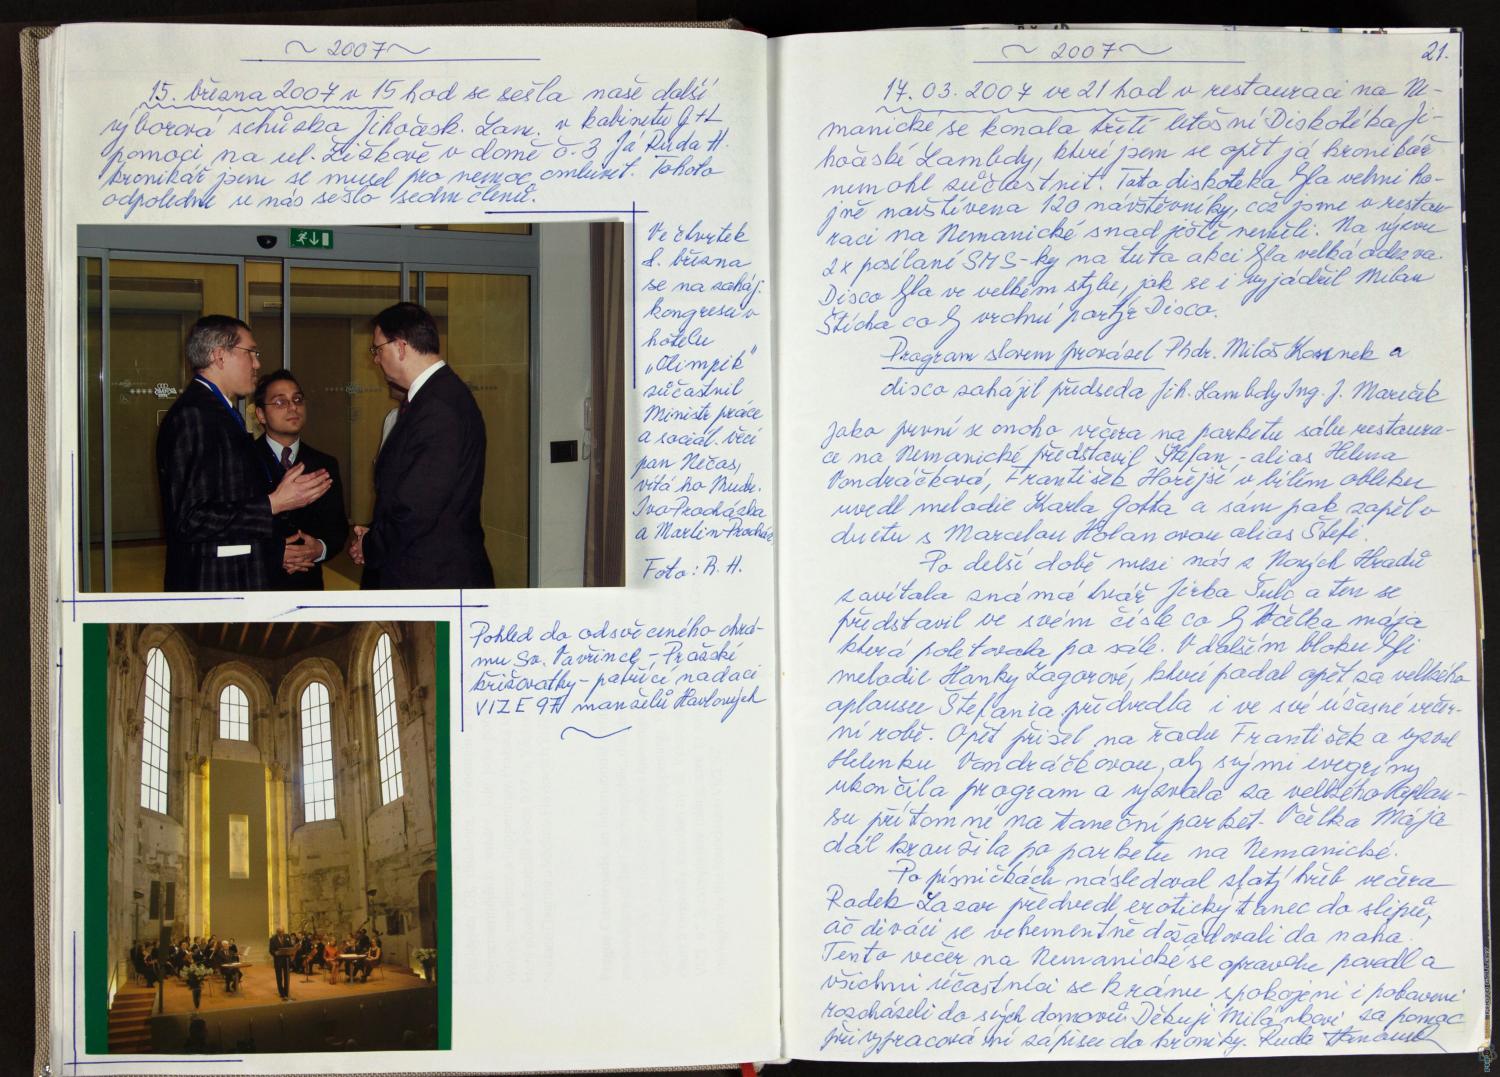 ~ 2007 ~
15. března 2007 v 15 hod se sešla naše další
výborová schůzka Jihočesk. Lam. v kabinetu G+L
pomoci na ul. Žižkově v domě č. 3 Já Ruda H.
kronikář jsem se musel pro nemoc omluvit. Tohoto
odpoledne se nás sešlo sedm členů.
Ve čtvrtek
8. března
se na zaháj.
kongresu v
hotelu
„Olimpik"
zúčastnil
Ministr práce
a sociál. věcí
pan Nečas,
vítá ho Mudr.
Ivo Procházka
a Martin Procház.
Foto: R. H.
Pohled do odsvěceného chrá-
mu Sv. Vavřince - Pražské
křižovatky - patřící nadaci
VIZE 97 manželů Havlových
~ 2007 ~
21.
17. 03. 2007 ve 21 hod v restauraci na Ne-
manické se konala třetí letošní Diskotéka Ji-
hočeské Lambdy, které jsem se opět já kronikář
nemohl zúčastnit. Tato diskotéka byla velmi ho-
jně navštívena 120 návštěvníky, což jsme v restau-
raci na Nemanické snad ještě neměli. Na výzvu
2x posílané SMS-ky na tuto akci byla velká odezva.
Disco byla ve velkém stylu, jak se i vyjádřil Milan
Štícha co by vrchní partýř Disca.
Program slovem provázel Phdr. Miloš
disco zahájil předseda Jih. Lambdy Ing. J. Mareček
Jako první se onoho večera na parketu sálu restaura-
ce na Nemanické představil Štefan - alias Helena
Vondráčková, František Hořejší v bílém obleku
uvedl melodie Karla Gotta a sám pak zapěl v
duetu s Marcelou Holanovou alias Štefi.
Po delší době mezi nás z Nových Hradů
zavítala známá tvář Jirka Šulc a ten se
představil ve svém čísle co by Včelka mája
která poletovala po sále. V dalším bloku byli
melodie Hanky Zagorové, které podal opět za velkého
aplausu Štefania předvedla i ve své úžasné večer-
ní robě. Opět přišel na řadu František a vyzval
Helenku Vondráčkovou, aby svými evergríny
ukončila program a vyzvala za velkého aplau-
su přítomné na taneční parket. Včelka Mája
dál kroužila po parketu na Nemanické.
Po písničkách následoval zlatý hřeb večera
Radek Lazar předvedl erotický tanec do slipů,
ač diváci se vehementně dožadovali do naha.
Tento večer na Nemanické se opravdu povedl a
všichni účastníci se k ránu spokojeni i pobaveni
rozcházeli do svých domovů. Děkuji Milánkovi za pomoc
při vypracování zápisu do kroniky. Ruda